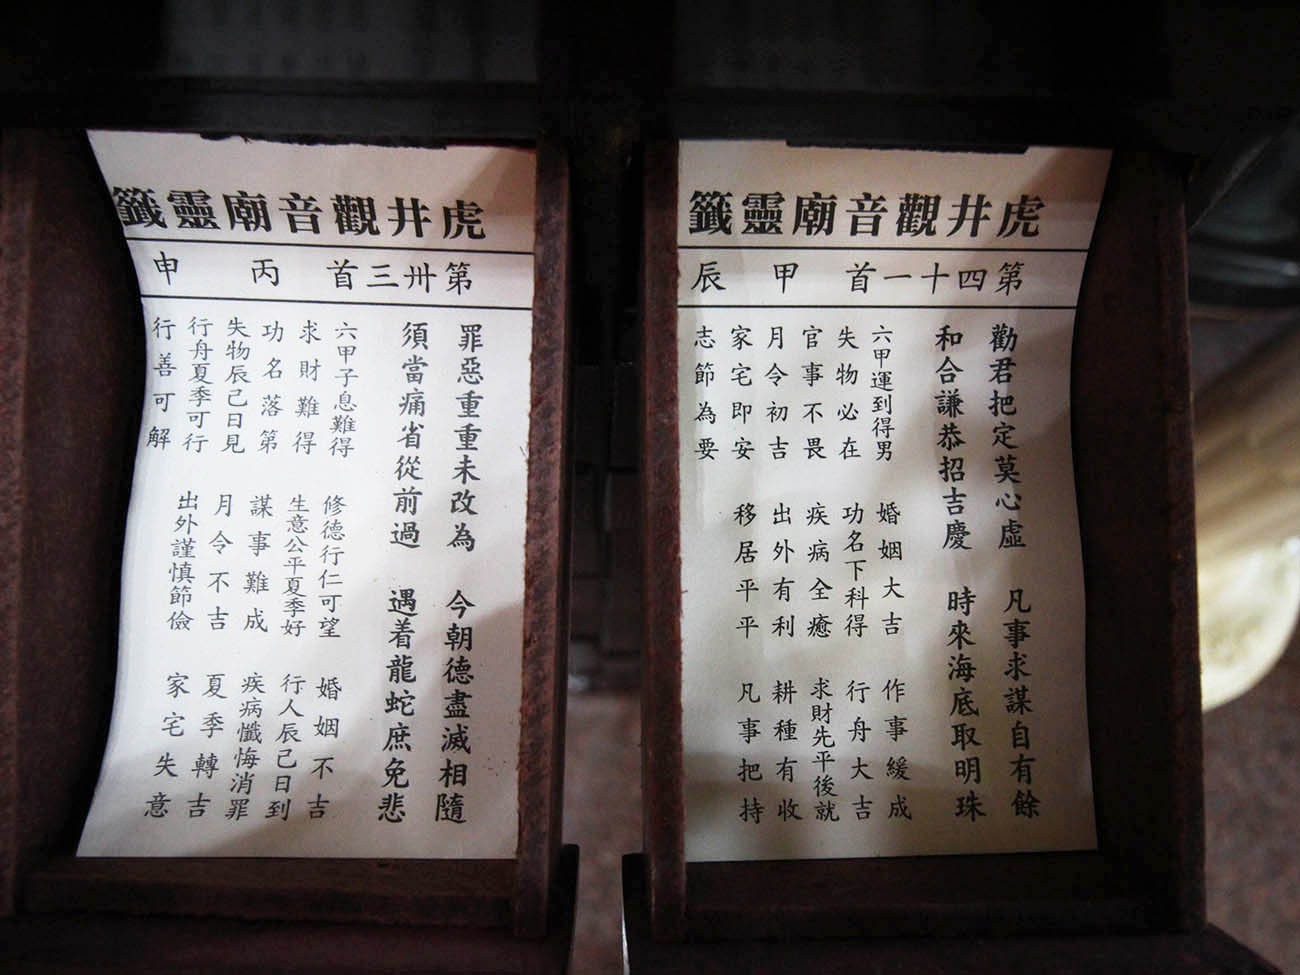 虎井觀音廟靈籤
第卅三首 丙 申
罪惡重重未改為 今朝德盡滅相隨
須當痛省從前過 遇着龍蛇庶免悲
六甲子息難得 修德行仁可望 婚姻不吉
求財難得 生意公平夏季好 行人辰己日到
功名落第 謀事難成 疾病懺悔消罪
失物辰己日見 月令不吉 夏季轉吉
行舟夏季可行 出外謹慎節儉 家宅失意
行善可解
虎井觀音廟靈籤
第四十一首 甲 辰
勸君把定莫心虛 凡事求謀自有餘
和合謙恭招吉慶 時來海底取明珠
六甲運到得男 婚姻大吉 作事緩成
失物必在 功名下科得 行舟大吉
官事不畏 疾病全癒 求財先平後就
月令初吉 出外有利 耕種有收
家宅即安 移居平平 凡事把持
志節為要